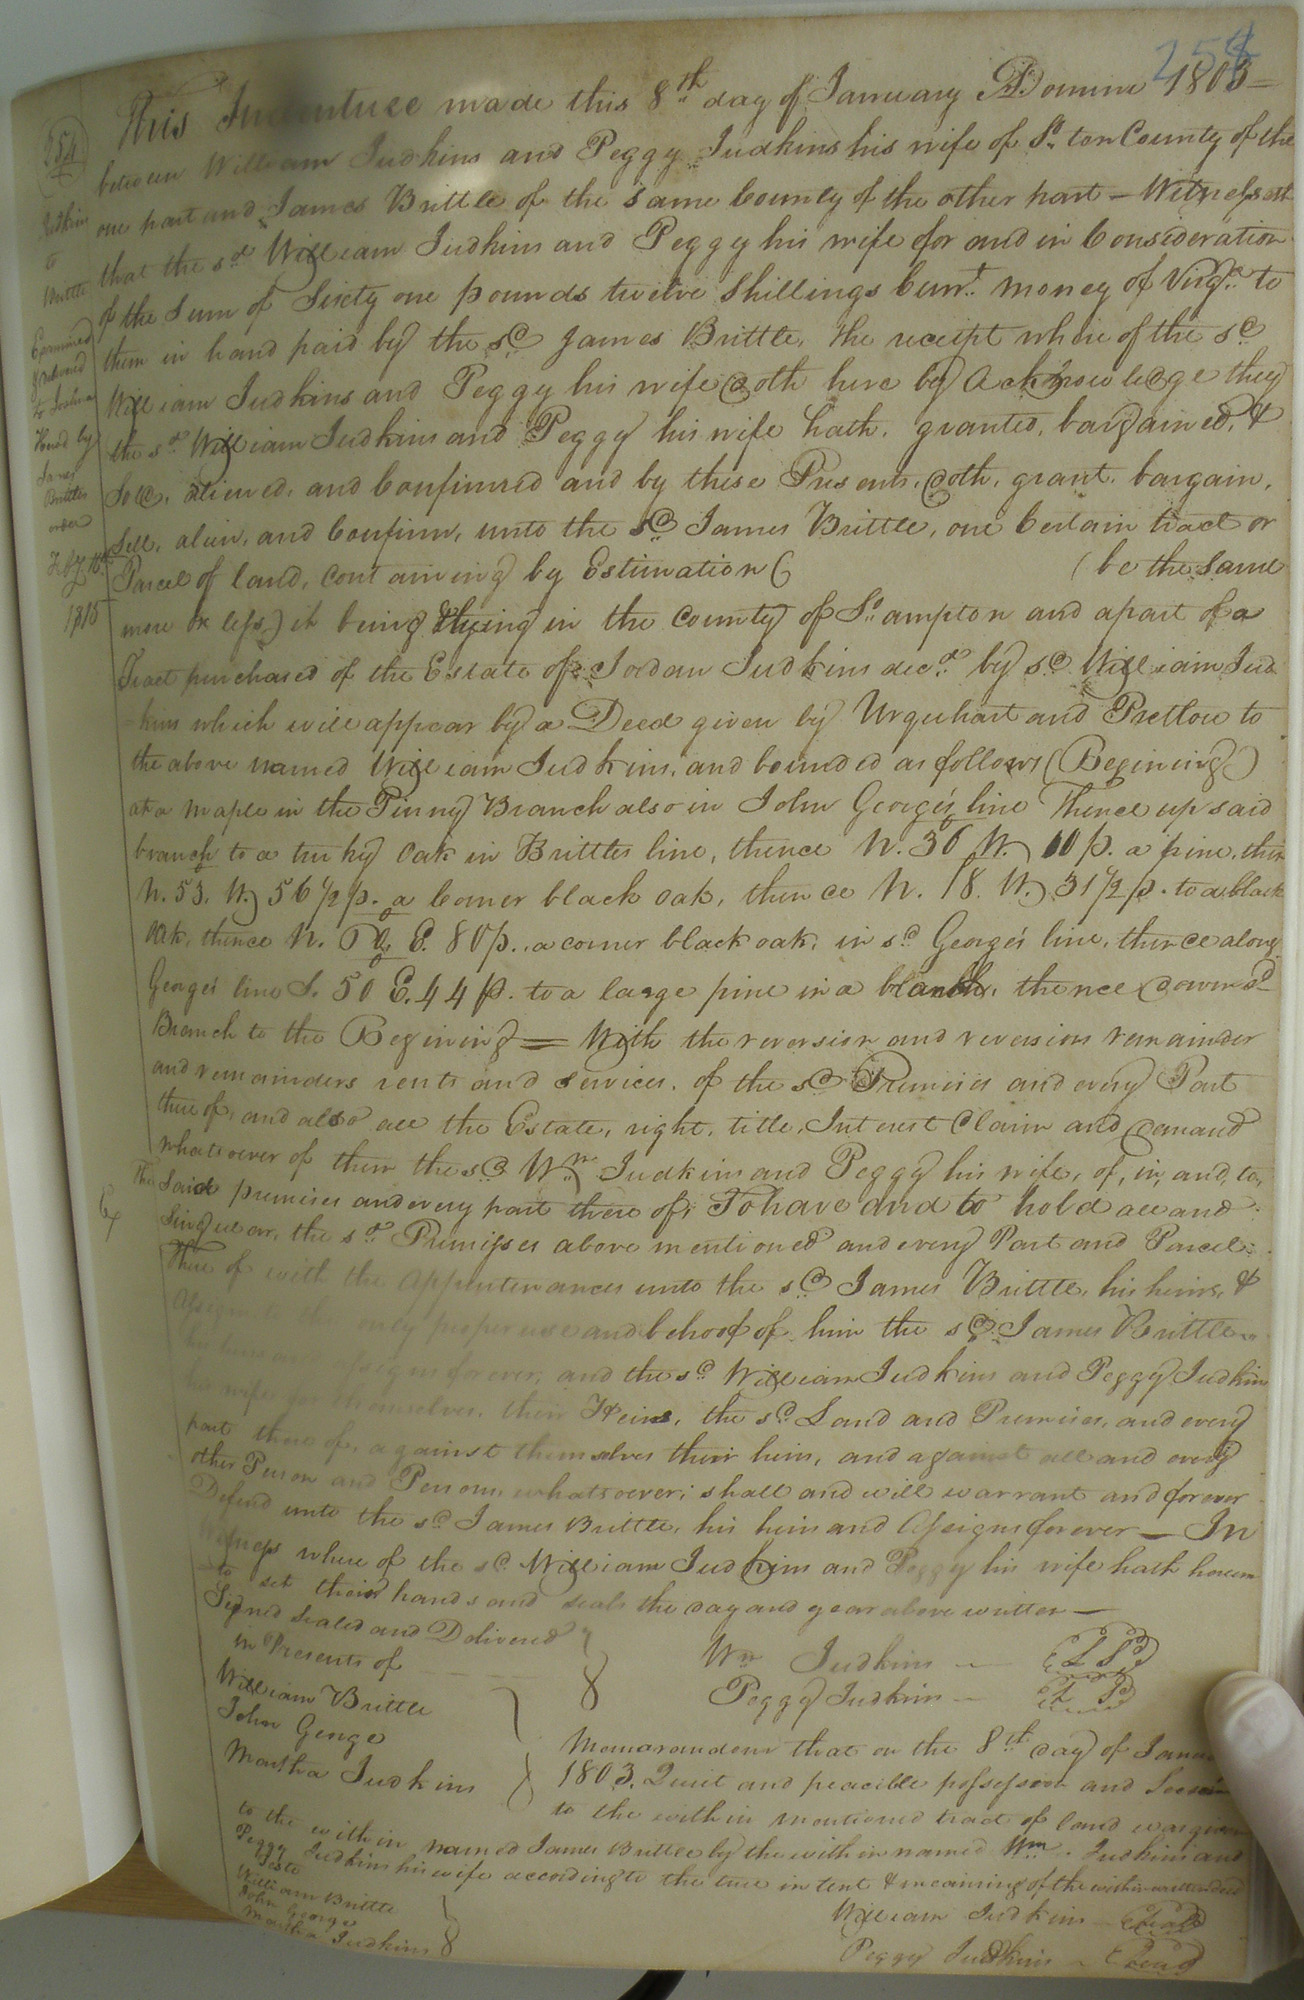 254
This Indenture made this 8th day of January A Domini 1803 =
between William Judkins and Peggy Judkins his wife of So.ton County of the
one part and James Brittle of the same County of the other part — Witnesseth
that the sd William Judkins and Peggy his wife for and in Consideration
of the Sum of Sixty one pounds twelve Shillings Currt. money of Virga. to
them in hand paid by the sd James Brittle, the receipt where of the sd
William Judkins and Peggy his wife doth here by Acknowledge they
the sd William Judkins and Peggy his wife hath, granted, bargained, &
Sold, aliened, and Confirmed and by these Presents, doth, grant, bargain,
Sell, alien, and Confirm, unto the sd James Brittle, one Certain tract or
Parcel of land, containing by Estimation ( ( be the same
more or less,) it being & lying in the County of So.ampton and a part of a
Tract purchased of the Estate of Jordan Judkins decd by sd William Jud
=kins which will appear by a Deed given by Urquhart and Pretlow to
the above named William Judkins, and bounded as follows (Begining)
at a maple in the Piney Branch also in John George's line Thence up said
branch to a turky Oak in Brittles line, thence N. 36 W. 10 p. a pine, then
N. 53. W. 56 1/2 p. a Corner black oak, thence N. 18. W. 31 1/2 p. to a black
oak, thence N. E. 80 p., a corner black oak, in sd George's line, thence along
George's line S. 50 E. 44 p. to a large pine in a branch, thence down sd
Branch to the Begining = With the reversion and reversions remainder
and remainders rents and services, of the sd Premises and every Part
there of, and also all the Estate, right, title, Interest Claim and demand
whatsoever of them the sd Wm Judkins and Peggy his wife, of, in, and, to,
The Said premises and every part there of, To have and to hold all and
Singular, the sd Premisses above mentioned and every Part and Parcel
There of with the Appurtenances unto the sd James Brittle, his heirs, &
Assigns to the only proper use and behoof of him the sd James Brittle
his heirs and assigns forever, and the sd William Judkins and Peggy Judkins
his wife for themselves, their Heirs, the sd Land and Premises, and every
part there of, against themselves their heirs, and against all and every
other Person and Persons, whatsoever; shall and will warrant and forever
Defend unto the sd James Brittle, his heirs and Assigns forever — In
Witness where of the sd William Judkins and Peggy his wife hath hereun
to set their hands and seals the day and year above written —
Signed Sealed and Delivered
in Presents of
William Brittle
John George
Martha Judkins
Wm Judkins — LS
Peggy Judkins — LS
Memorandom that on the 8th day of Janu
1803. Quiet and peacible possession and Seesin
to the with in mentioned tract of land was given
to the with in named James Brittle by the with in named Wm. Judkins and
Peggy Judkins his wife according to the true intent & meaning of the within written deed
Teste
William Brittle
John George
Martha Judkins
William Judkins — Seal
Peggy Judkins — Seal
254
Judkins
to
Brittle
Examined
& delivered
to Joshua
by
James
Brittles
order
1815
Ex